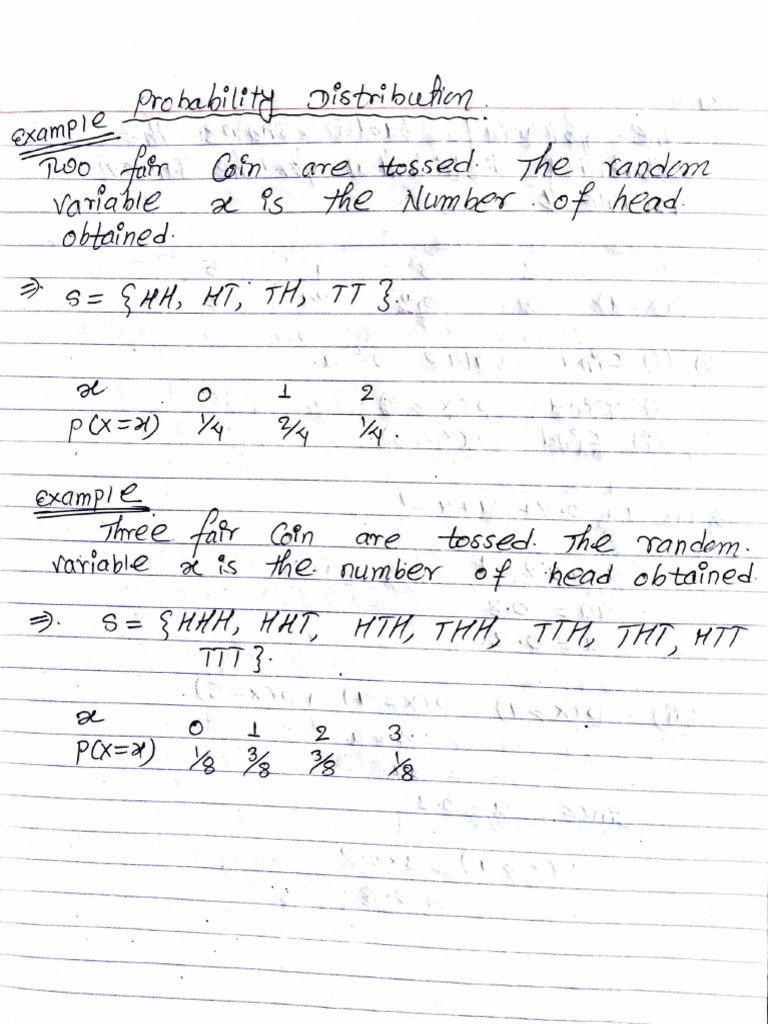 Probability Distribution.
example
Two fair Coin are tossed. The random
variable x is the Number of head.
obtained.
⇒ S = {HH, HT, TH, TT}.
x 0 1 2
P(X=x) 1/4 2/4 1/4.
example
Three fair Coin are tossed. The random.
variable x is the number of head obtained
⇒. S = {HHH, HHT, HTH, THH, TTH, THT, HTT
TTT}.
x 0 1 2 3.
P(X=x) 1/8 3/8 3/8 1/8